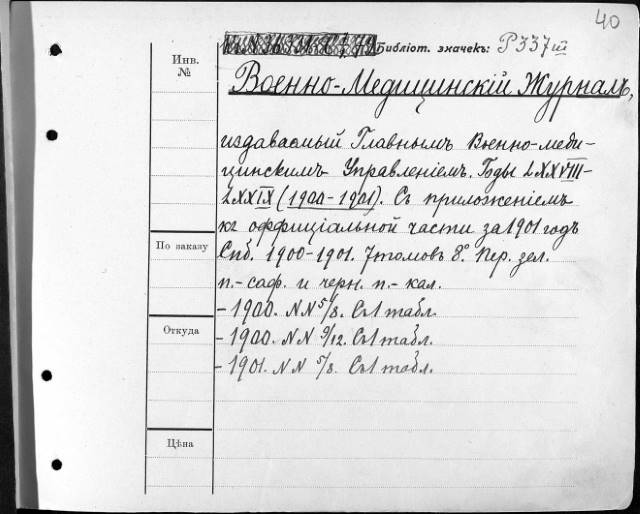 40
Библіот. значекъ: P337III
Инв.
№
Военно-Медицинскій Журналъ,
издаваемый Главнымъ Военно-меди-
цинскимъ Управленіемъ. Годы LXXVIII-
LXXIX (1900-1901). Съ приложеніемъ
къ оффиціальной части за 1901 годъ
По заказу
Спб. 1900-1901. 7 томовъ 8°. Пер. зел.
п.- саф. и черн. п.- кал.
- 1900. NN 5/8. Съ 1 табл.
Откуда
- 1900. NN 9/12. Съ 1 табл.
- 1901. NN 5/8. Съ 1 табл.
Цѣна